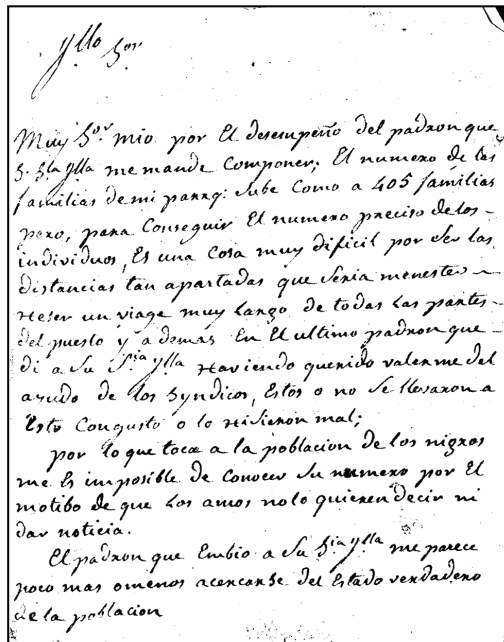 Yllo Sor
Muy Sor mio por El desempeño del padron que
S. Sia Ylla me mande Componer; El numero de las
familias de mi parrq: Sube Como a 405 familias
pero, para Conseguir El numero preciso de los-
individuos, Es una Cosa muy dificil por Ser las
distancias tan apartadas que Seria menester
Heser un viage muy largo de todas Las partes-
del puesto y ademas En El ultimo padron que-
di a Su Sia Ylla Haviendo querido valerme del
ayudo de los Syndicos, Estos o no Se llevaron a
Esto Congusto o lo Hisieron mal;
por lo que toca a la poblacion de los nigros
me Es imposible de Conocer Su numero por El
motibo de que Los amos nolo quieren decir ni
dar noticia.
El padron que Embio a Su Sia Ylla me parece
poco mas omenos acercarse del Estado verdadero
de la poblacion